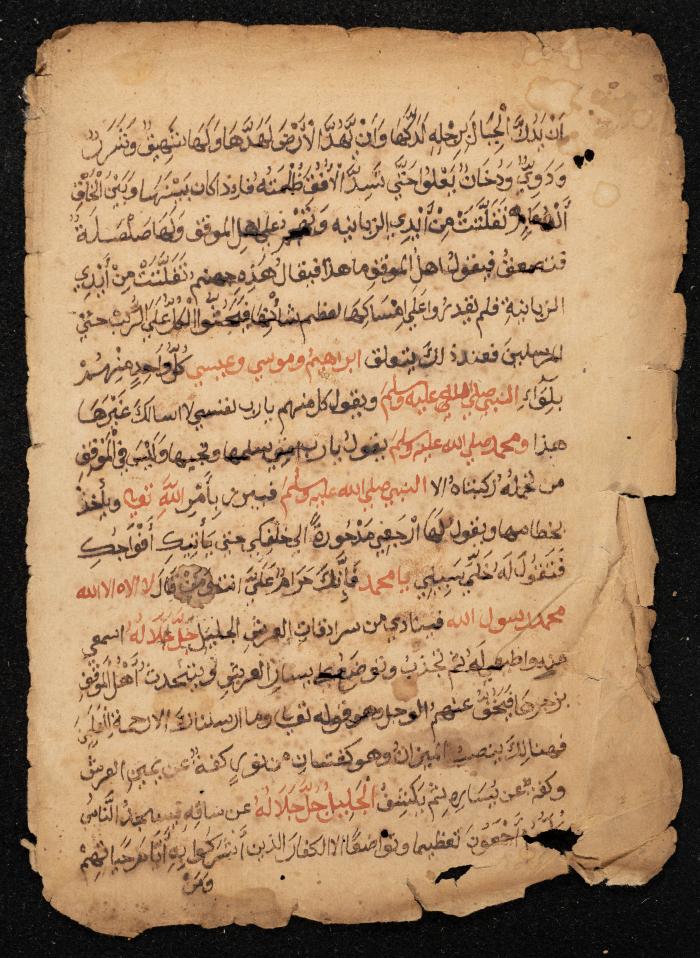 ان يدك الجبال برجله لدكها وان يهد الارض لهدها ولها شهيق وتفرر
ودوي ودخان يعلوا حتى تسد الافق ظلمته فاذا كان بينها وبين الخلق
تفلتت من أيدي الزبانيه على اهل الموقف ولها صلصلة
فيقول اهل الموقف ما هذا فيقال هذه جهنم تفلتت من أيدي
الزبانية فلم يقدروا على امساكها لعظم شأنها على الركب حتى
المرسلين فعند ذلك يتعلق ابراهيم وموسي وعيسي كل واحد منهم
بلواء النبي صلي الله عليه وسلم ويقول كل منهم يارب نفسي لا اسالك غيرها
هذا ومحمد صلي الله عليه وسلم يقول يارب امتي سلمها ونجيها وليس في الموقف
من تحمله ركبتاه الا النبي صلي الله عليه وسلم فيبرز بأمر الله تعا وياخذ
بخطامها ويقول لها ارجعي مدحورة الى خلفكي حتى يأتيك أفواجك
فتقول له خلي سبيلي يا محمد فإنك حرام علي قال لا اله الا الله
محمد رسول الله فينادي من سرادقات العرش الجليل جل جلاله اسمعي
منه واطيعي له ثم تجذب وتوضع يسار العرش ويتحدث أهل الموقف
بزجرها فيخف عنهم الوجل وهو قوله تعا وما ارسلناك الا رحمة للعلمين
فهنالك ينصب الميزان وهو كفتان من نور كفة عن يمين العرش
وكفة عن يساره ثم يكشف الجليل جل جلاله عن ساقه فيسجد الناس
أجمعون تعظيما وتواضعا الا الكفار الذين أشركوا به أيام حياتهم
ومن